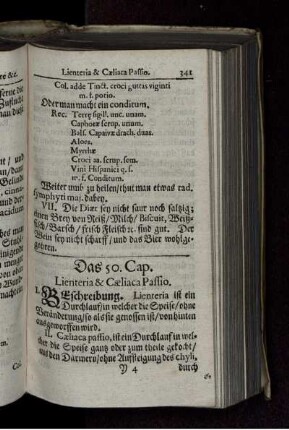 Lienteria & Cæliaca Passio. 341
Col. adde Tinct. croci guttas viginti
m. f. potio.
Oder man macht ein conditum.
Rec. Terræ sigill. unc. unam.
Caphoræ scrup. unam.
Bals. Capaivæ drach. duas.
Aloes.
Myrrhæ
Croci aa. scrup. sem.
Vini Hispanici q. s.
m. f. Conditum.
Weiter umb zu heilen/thut man etwas rad.
Symphyti maj. dabey.
VII. Die Diæt sey nicht saur noch saltzig;
einen Brey von Reiß/Milch/Biscuit, Weitz-
Fisch/Barsch/frisch Fleisch sind gut. Der
Wein sey nicht scharff/und das Bier wohlge-
gohren.
Das 50. Cap.
Lienteria & Cæliaca Passio.
I. BEschreibung. Lienteria ist ein
Durchlauff in welcher die Speise/ohne
Veränderung/so als sie genossen ist/von hinten
ausgeworffen wird.
II. Cæliaca passio, ist ein Durchlauff in wel-
cher die Speise gantz oder zum theile gekocht/
aus den Därmern/ohne Auffsteigung des chyli,
Y 4 durch